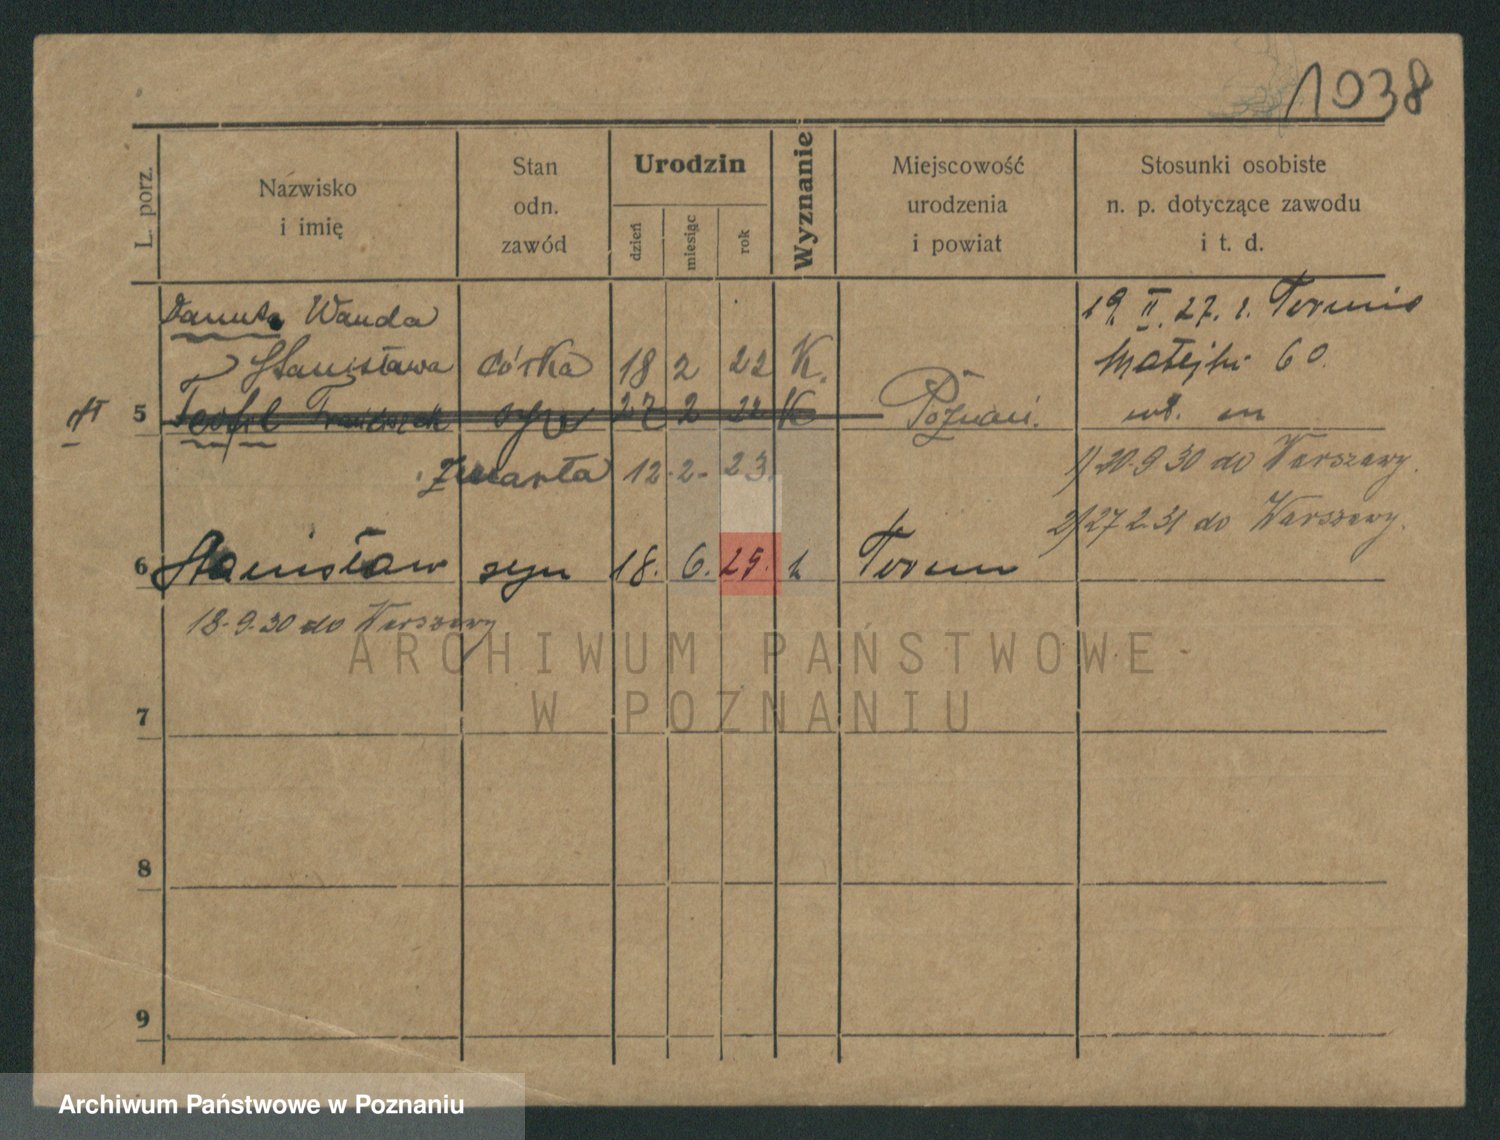 1038
L. porz.
Nazwisko
i imię
Stan
odn.
zawód
Urodzin
dzień
miesiąc
rok
Wyznanie
Miejscowość
urodzenia
i powiat
Stosunki osobiste
n. p. dotyczące zawodu
i t. d.
Danuta Wanda
19. II. 27. z Torunia
Stanisława córka 18 2 22 K.
Matejki 60.
5 Teofil Franciszek 27 2 22 K Poznań.
zmarła 12. 2. 23.
1) 20.9.30 do Warszawy.
2) 27.2.31 do Warszawy.
6 Stanisław syn 18. 6. 25. Toruń
18.9.30 do Warszawy
ARCHIWUM PAŃSTWOWE
W POZNANIU
7
8
9
Archiwum Państwowe w Poznaniu